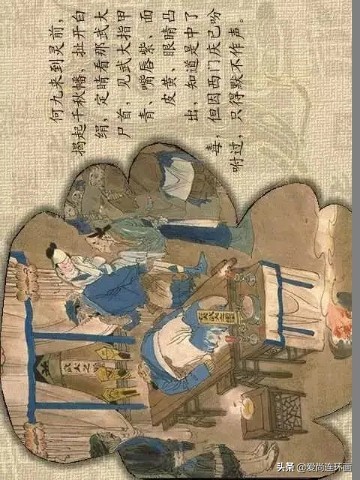 何九来到灵前，
揭起千秋幡、扯开白
绢，定睛看那武大
尸首，见武大指甲
青、嘴唇紫、面
皮黄、眼睛凸
出，知道是中了
毒，但因西门庆已吩
咐过，只得默不作声。
头条 @爱尚连环画